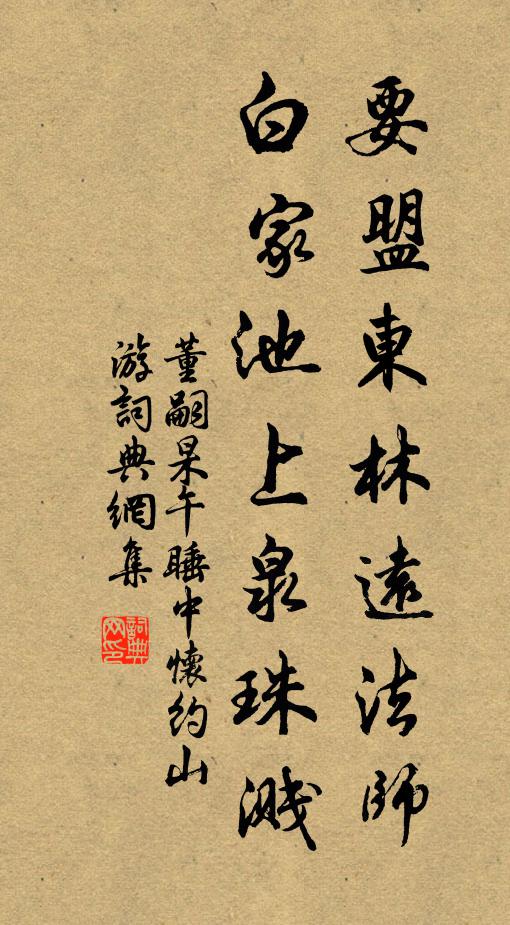 要盟東林遠法師
白家池上泉珠濺
董嗣杲午睡中懷約山
游詞典網集
詞典網印